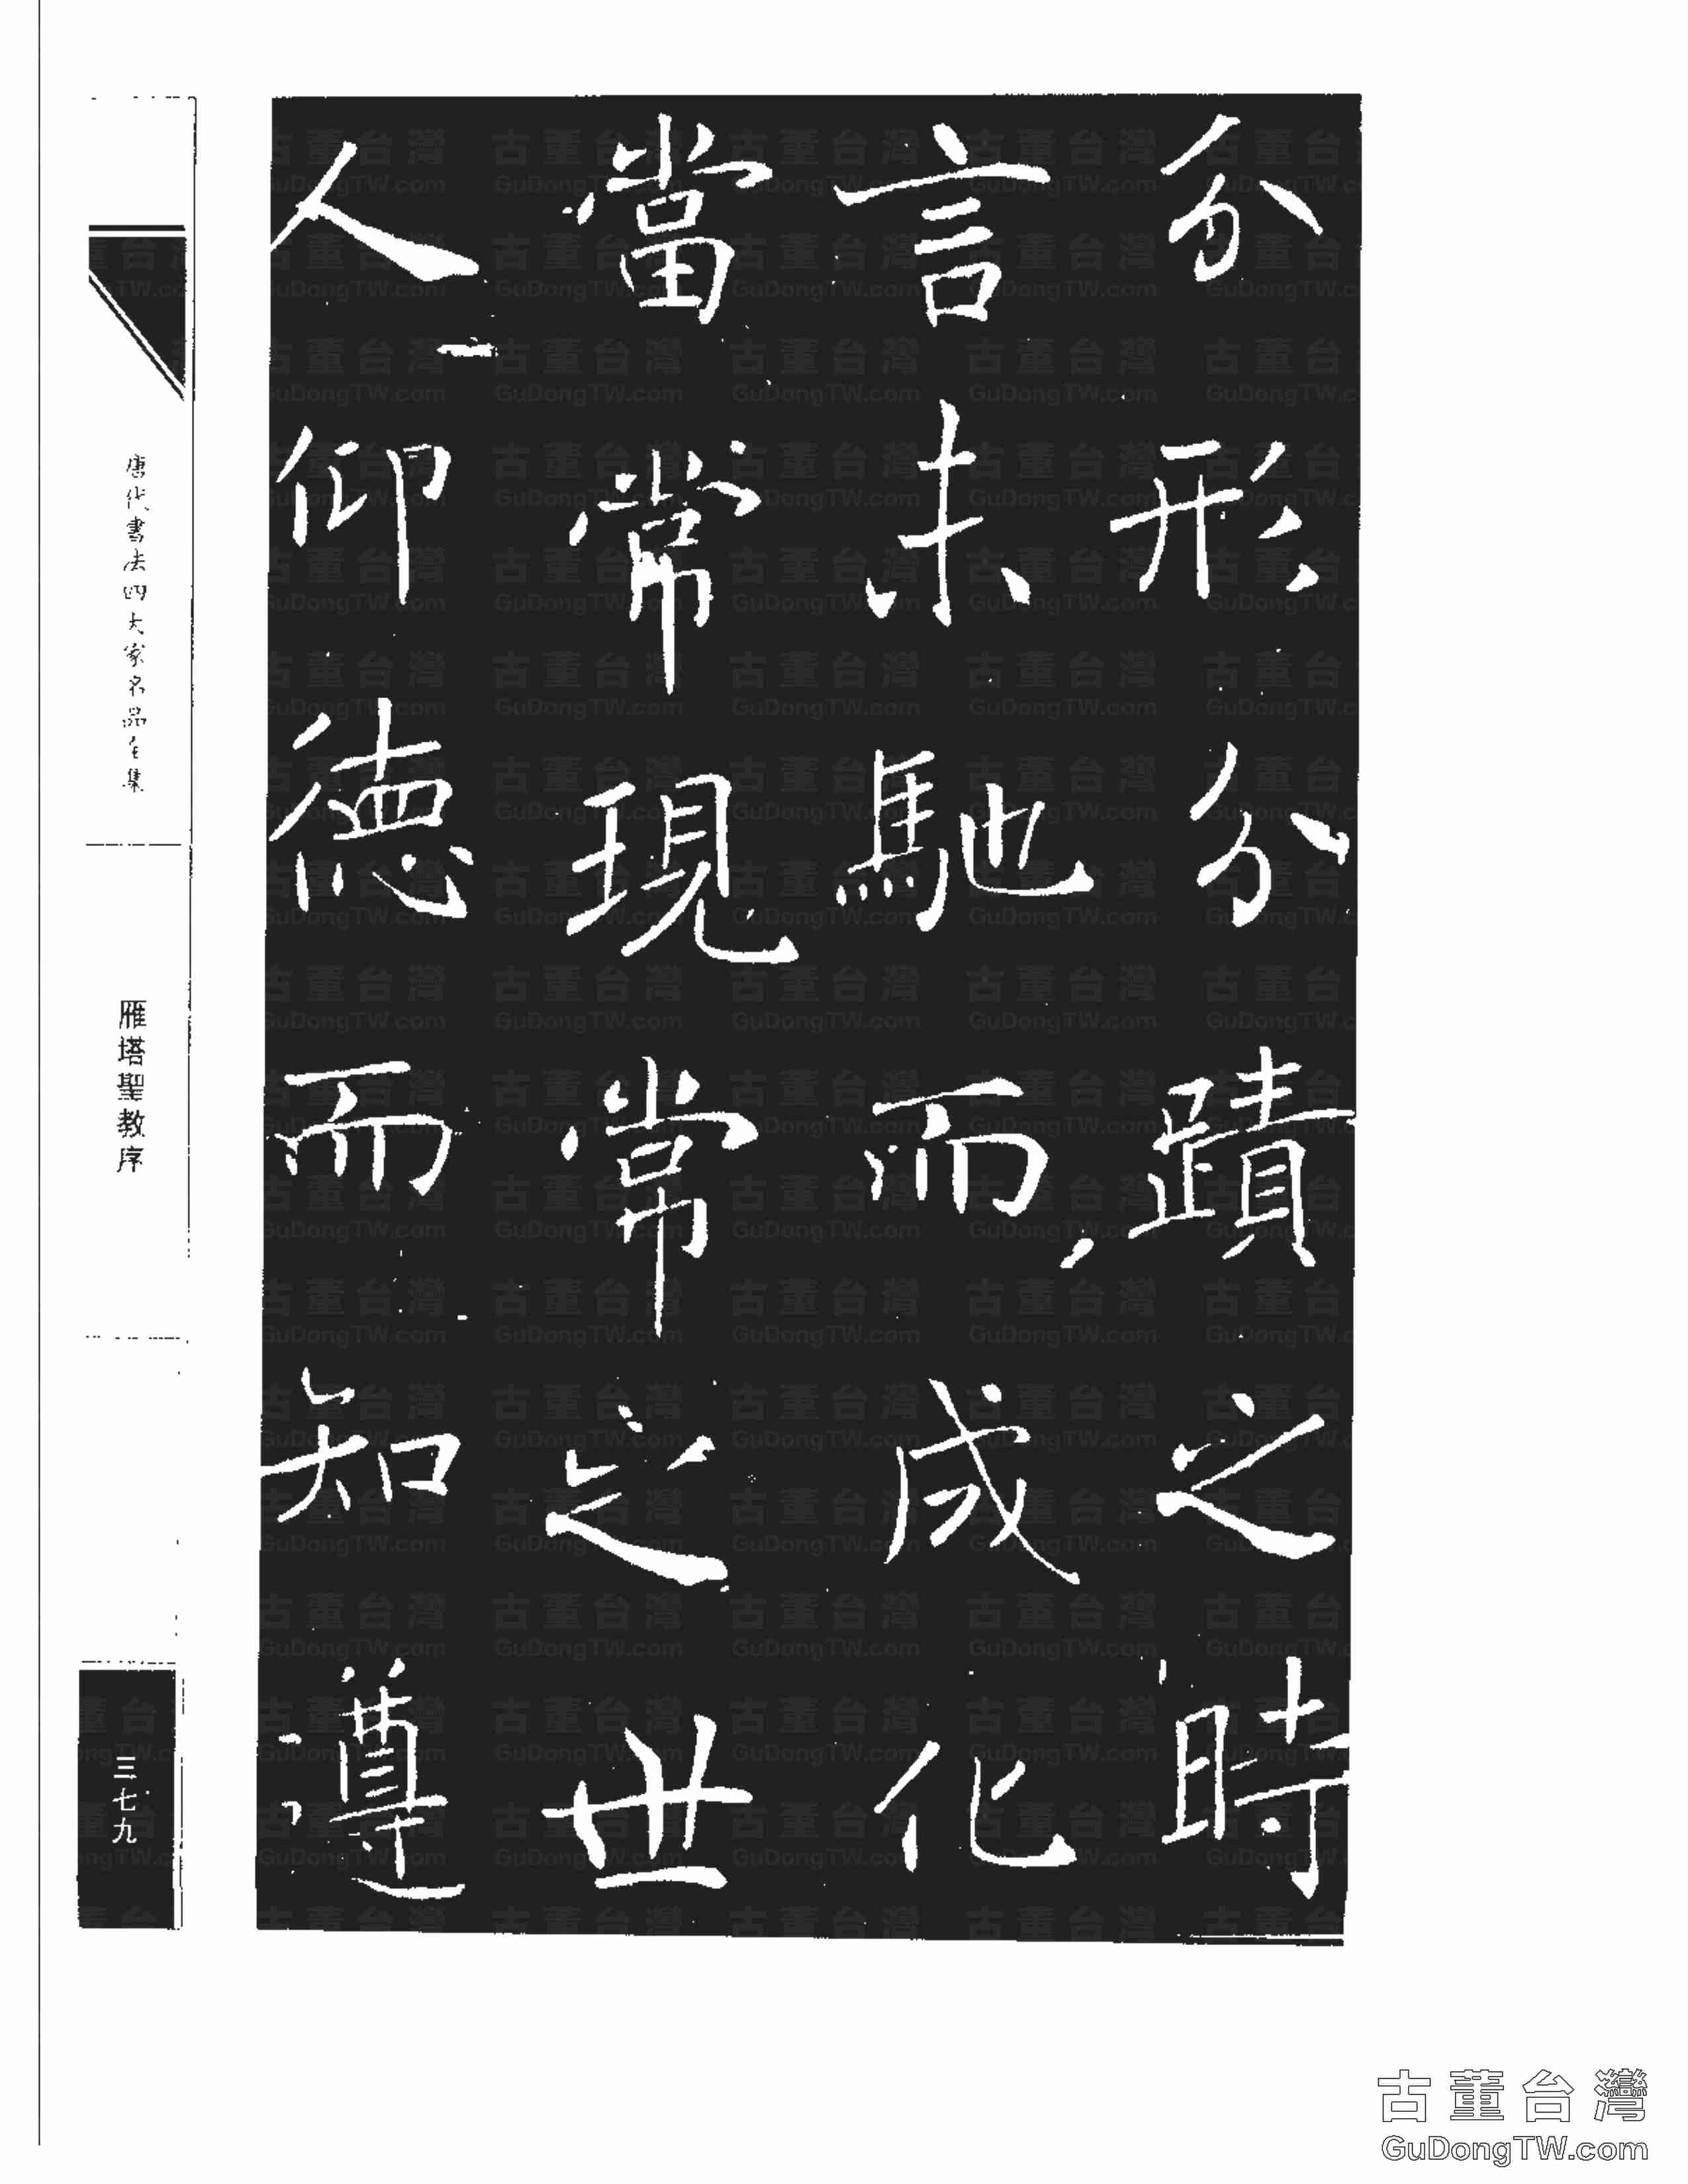 分形分蹟之時
言未馳而成化
當常現常之世
人仰德而知遵
唐代書法四大家名品全集
雁塔聖教序
三七九
古董台灣
GuDongTW.com